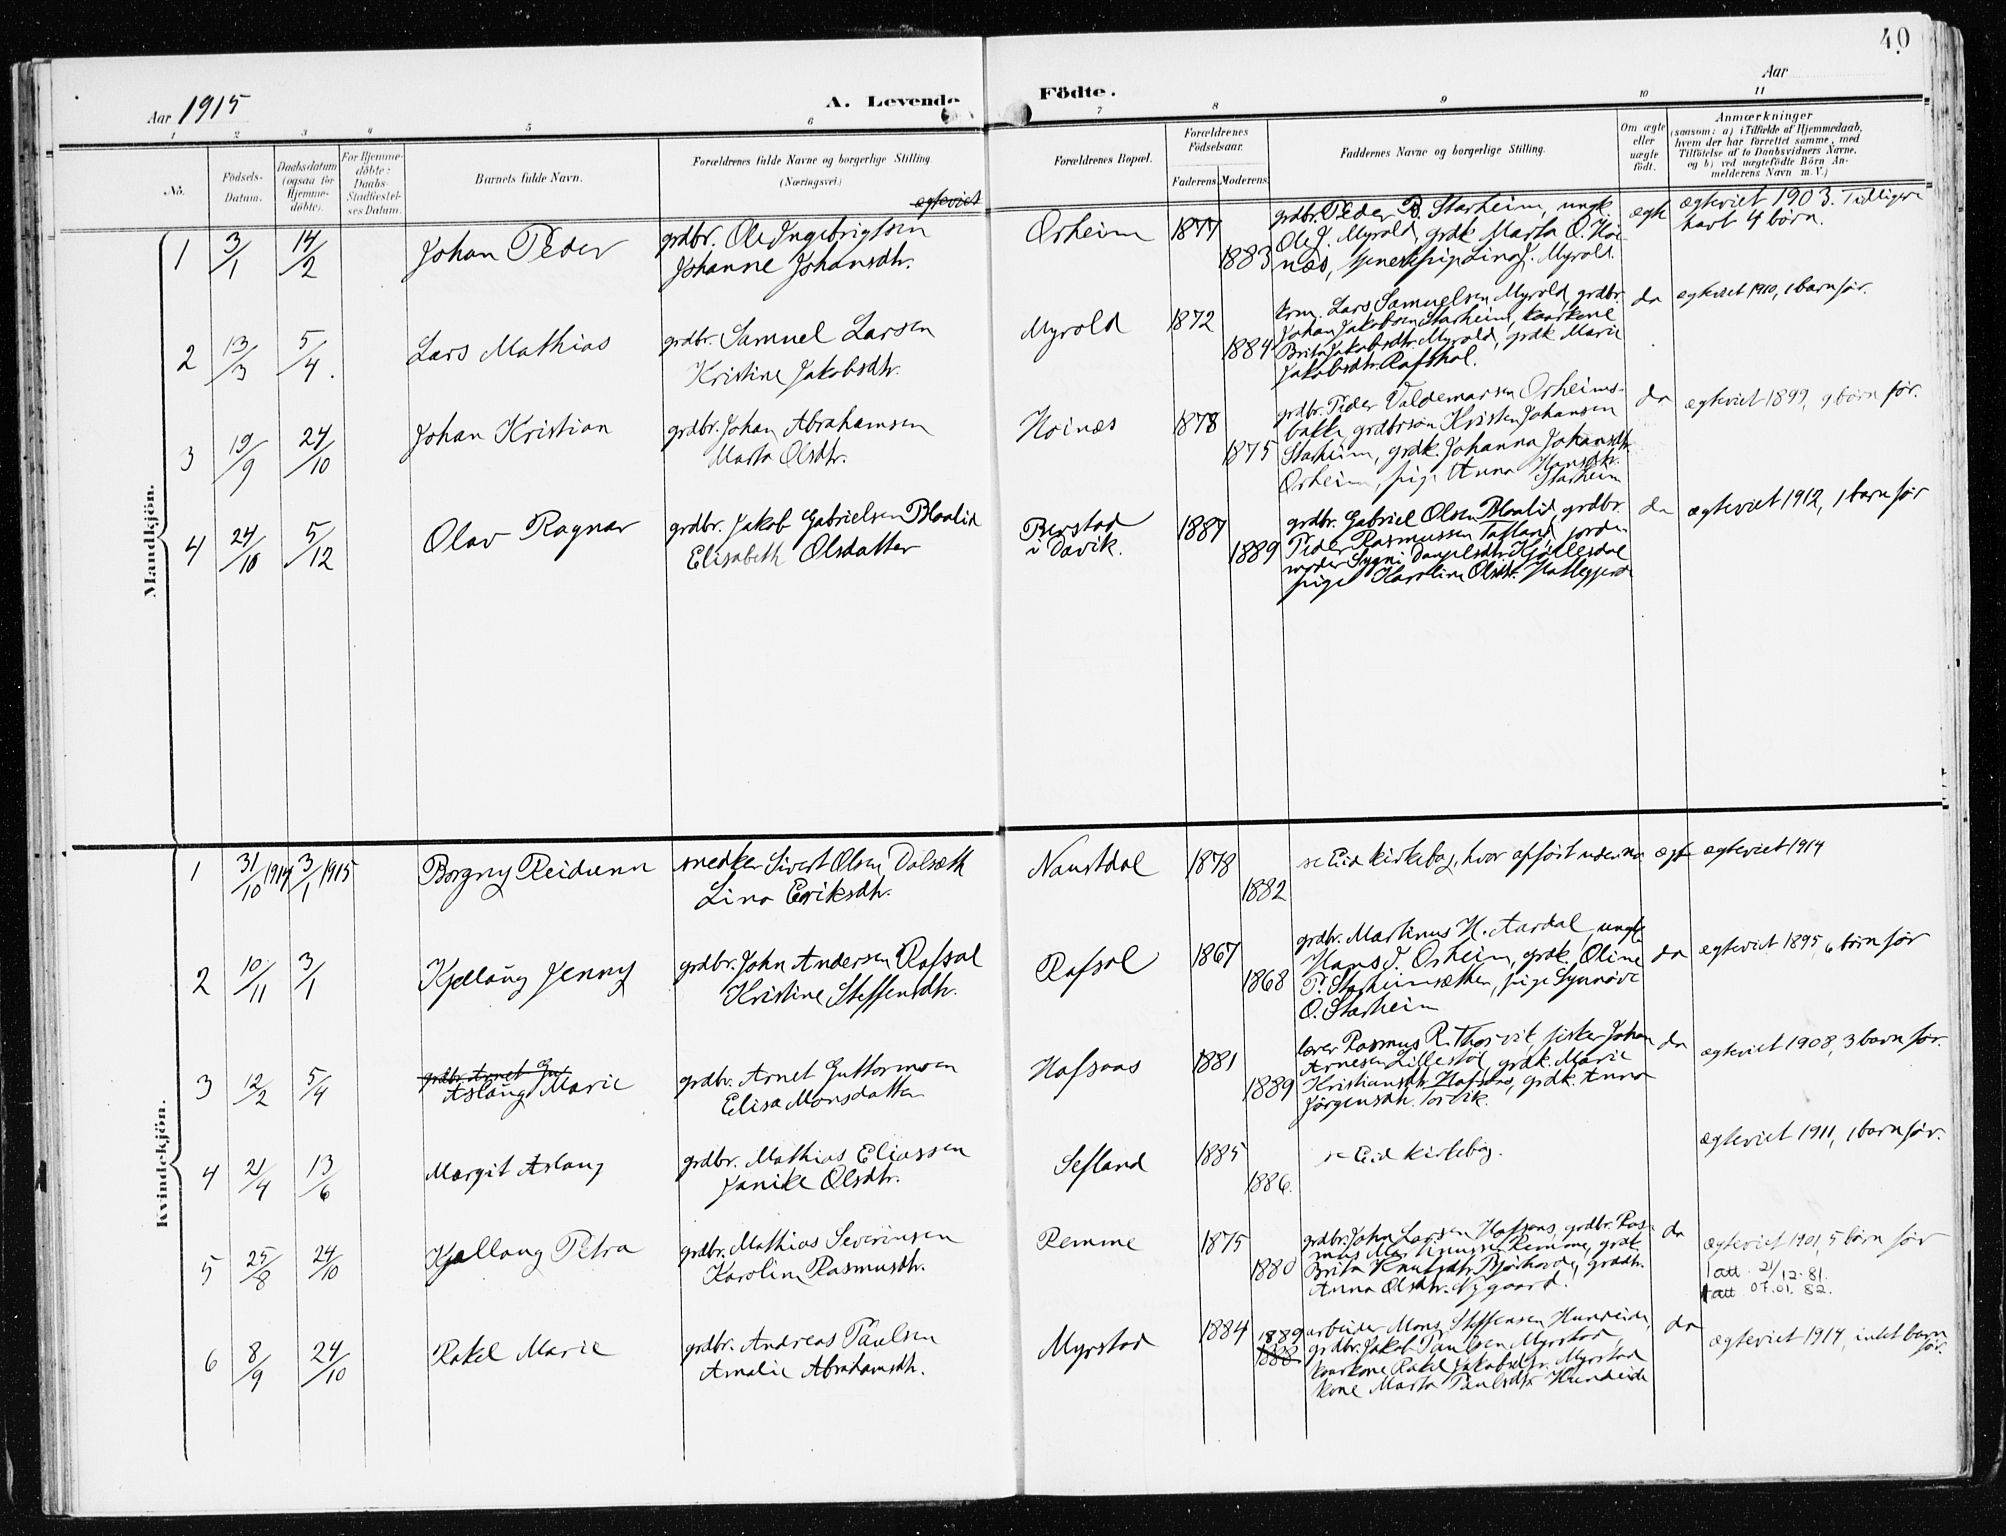 40
Aar 1915
A. Levende Födte.
Aar
1 2 3 4 5 6 7 8 9 10 11
No.
Födsels-Datum.
Daabsdatum (ogsaa for Hjemme-döbte).
For Hjemme-döbte: Daabs-Stadfæstel-ses Datum.
Barnets fulde Navn.
Forældrenes fulde Navne og borgerlige Stilling (Næringsvei)
Forældrenes Bopæl.
Forældrenes Födselsaar.
Faderens Moderens
Faddernes Navne og borgerlige Stilling.
Om ægte eller uægte födt.
Anmærkninger
(saasom: a) i Tilfælde af Hjemmedaab,
hvem der har forrettet samme, med
Tilföielse af to Daabsvidners Navne,
og b) ved uægtefödte Börn An-
melderens Navn m. V.)
ægteviet
Mandkjön.
1 3/1 14/2 Johan Peder
grdbr. Ole Ingebrigtsen
Johanne Johansdtr.
Orheim 1877 1883
grdbr. Peder B. Starheim, ungk.
Ole J. Myrold, grdk Marta O. Hoi-
næs, tjenestpige Lina J. Myrold.
ægte
ægteviet 1903. Tidligere
havt 4 børn.
2 13/3 5/4. Lars Mathias
grdbr. Samuel Larsen
Kristine Jakobsdtr.
Myrold 1872 1884
krm. Lars Samuelsen Myrold, grdbr.
Johan Jakobsen Starheim, kaarkone
Brita Jakobsdtr. Myrold, grdk Marie
Jakobsdtr. Rafthal.
da
ægteviet 1910, 1 barn før.
3 19/9 24/10 Johan Kristian
grdbr. Johan Abrahamsen
Marta Olsdtr.
Hoinæs 1878 1875
grdbr. Peder Valdemarsen Orheims-
bakk, grdbrsøn Kristen Johansen
Starheim, grdk. Johanna Johansdtr.
Orheim, pige Anna Hansdtr.
Starheim
da
ægteviet 1899, 9 børn før.
4 24/10 5/12 Olav Ragnar
grdbr. Jakob Gabrielsen Blaalid
Elisabeth Olsdatter
Berstad
i Davik. 1887 1889
grdbr. Gabriel Olsen Blaalid, grdbr.
Peder Rasmussen Tafland, jorde-
moder Sygni Danielsdtr. Hjellesdal
pige Karoline Olsdtr. Hatlegjerde
da
ægteviet 1912, 1 barn før
Kvindekjön.
1 31/10 1914 3/1 1915 Borgny Reidunn
snedker Sivert Olsen Dalsæth
Lina Eriksdtr.
Naustdal 1878 1882
se Eid kirkebog, hvor opført uden no
ægte
ægteviet 1914
2 10/11 3/1 Kjellaug Jenny
grdbr. John Andersen Rafsal
Kristine Steffensdtr.
Rafsal 1867 1868
grdbr. Martinus H. Aardal, ungk.
Hans J. Orheim, grdk. Oline
P. Starheimsæther, pige Synnøve
O. Starheim
da
ægteviet 1895, 6 børn før
3 12/2 5/4
grdbr. Arnet Gut
Aslaug Marie
grdbr. Arnet Guttormsen
Elisa Monsdatter
Hafsaas 1881 1889
lærer Rasmus R. Thorvik, fisker Johan
Arnesen Lillestøl, grdk. Marie
Kristiansdtr. Hafsaas, grdk. Anna
Jørgensdtr. Torvik.
da
ægteviet 1908, 3 barn før.
4 21/4 13/6 Margit Aslaug
grdbr. Mathias Eliassen
Janike Olsdtr.
Sefland 1885 1886.
se Eid kirkebog.
ægteviet 1911, 1 barn før.
5 25/8 24/10 Kjellaug Petra
grdbr. Mathias Severinsen
Karoline Rasmusdtr.
Remme 1875 1880
grdbr. John Larsen Hafsaas, grdbr. Ras-
mus Knutsen Remme, grdk.
Brita Knutsdtr. Bjørhovde, grddtr.
Anna Olsdtr. Nygaard.
da
ægteviet 1901, 5 børn før
1 att 21/12-81.
1 att 07.01.82.
6 8/9 24/10 Rakel Marie
grdbr. Andreas Paulsen
Amalie Abrahamsdtr.
Myrstad 1884 1889 1888
arbeider Mons Steffensen Hundeide,
grdbr. Jakob Paulsen Myrstad,
kaarkone Rakel Jakobsdtr. Myrstad
kone Marta Paulsdtr. Hundeide
da
ægteviet 1914, intet barn
før.